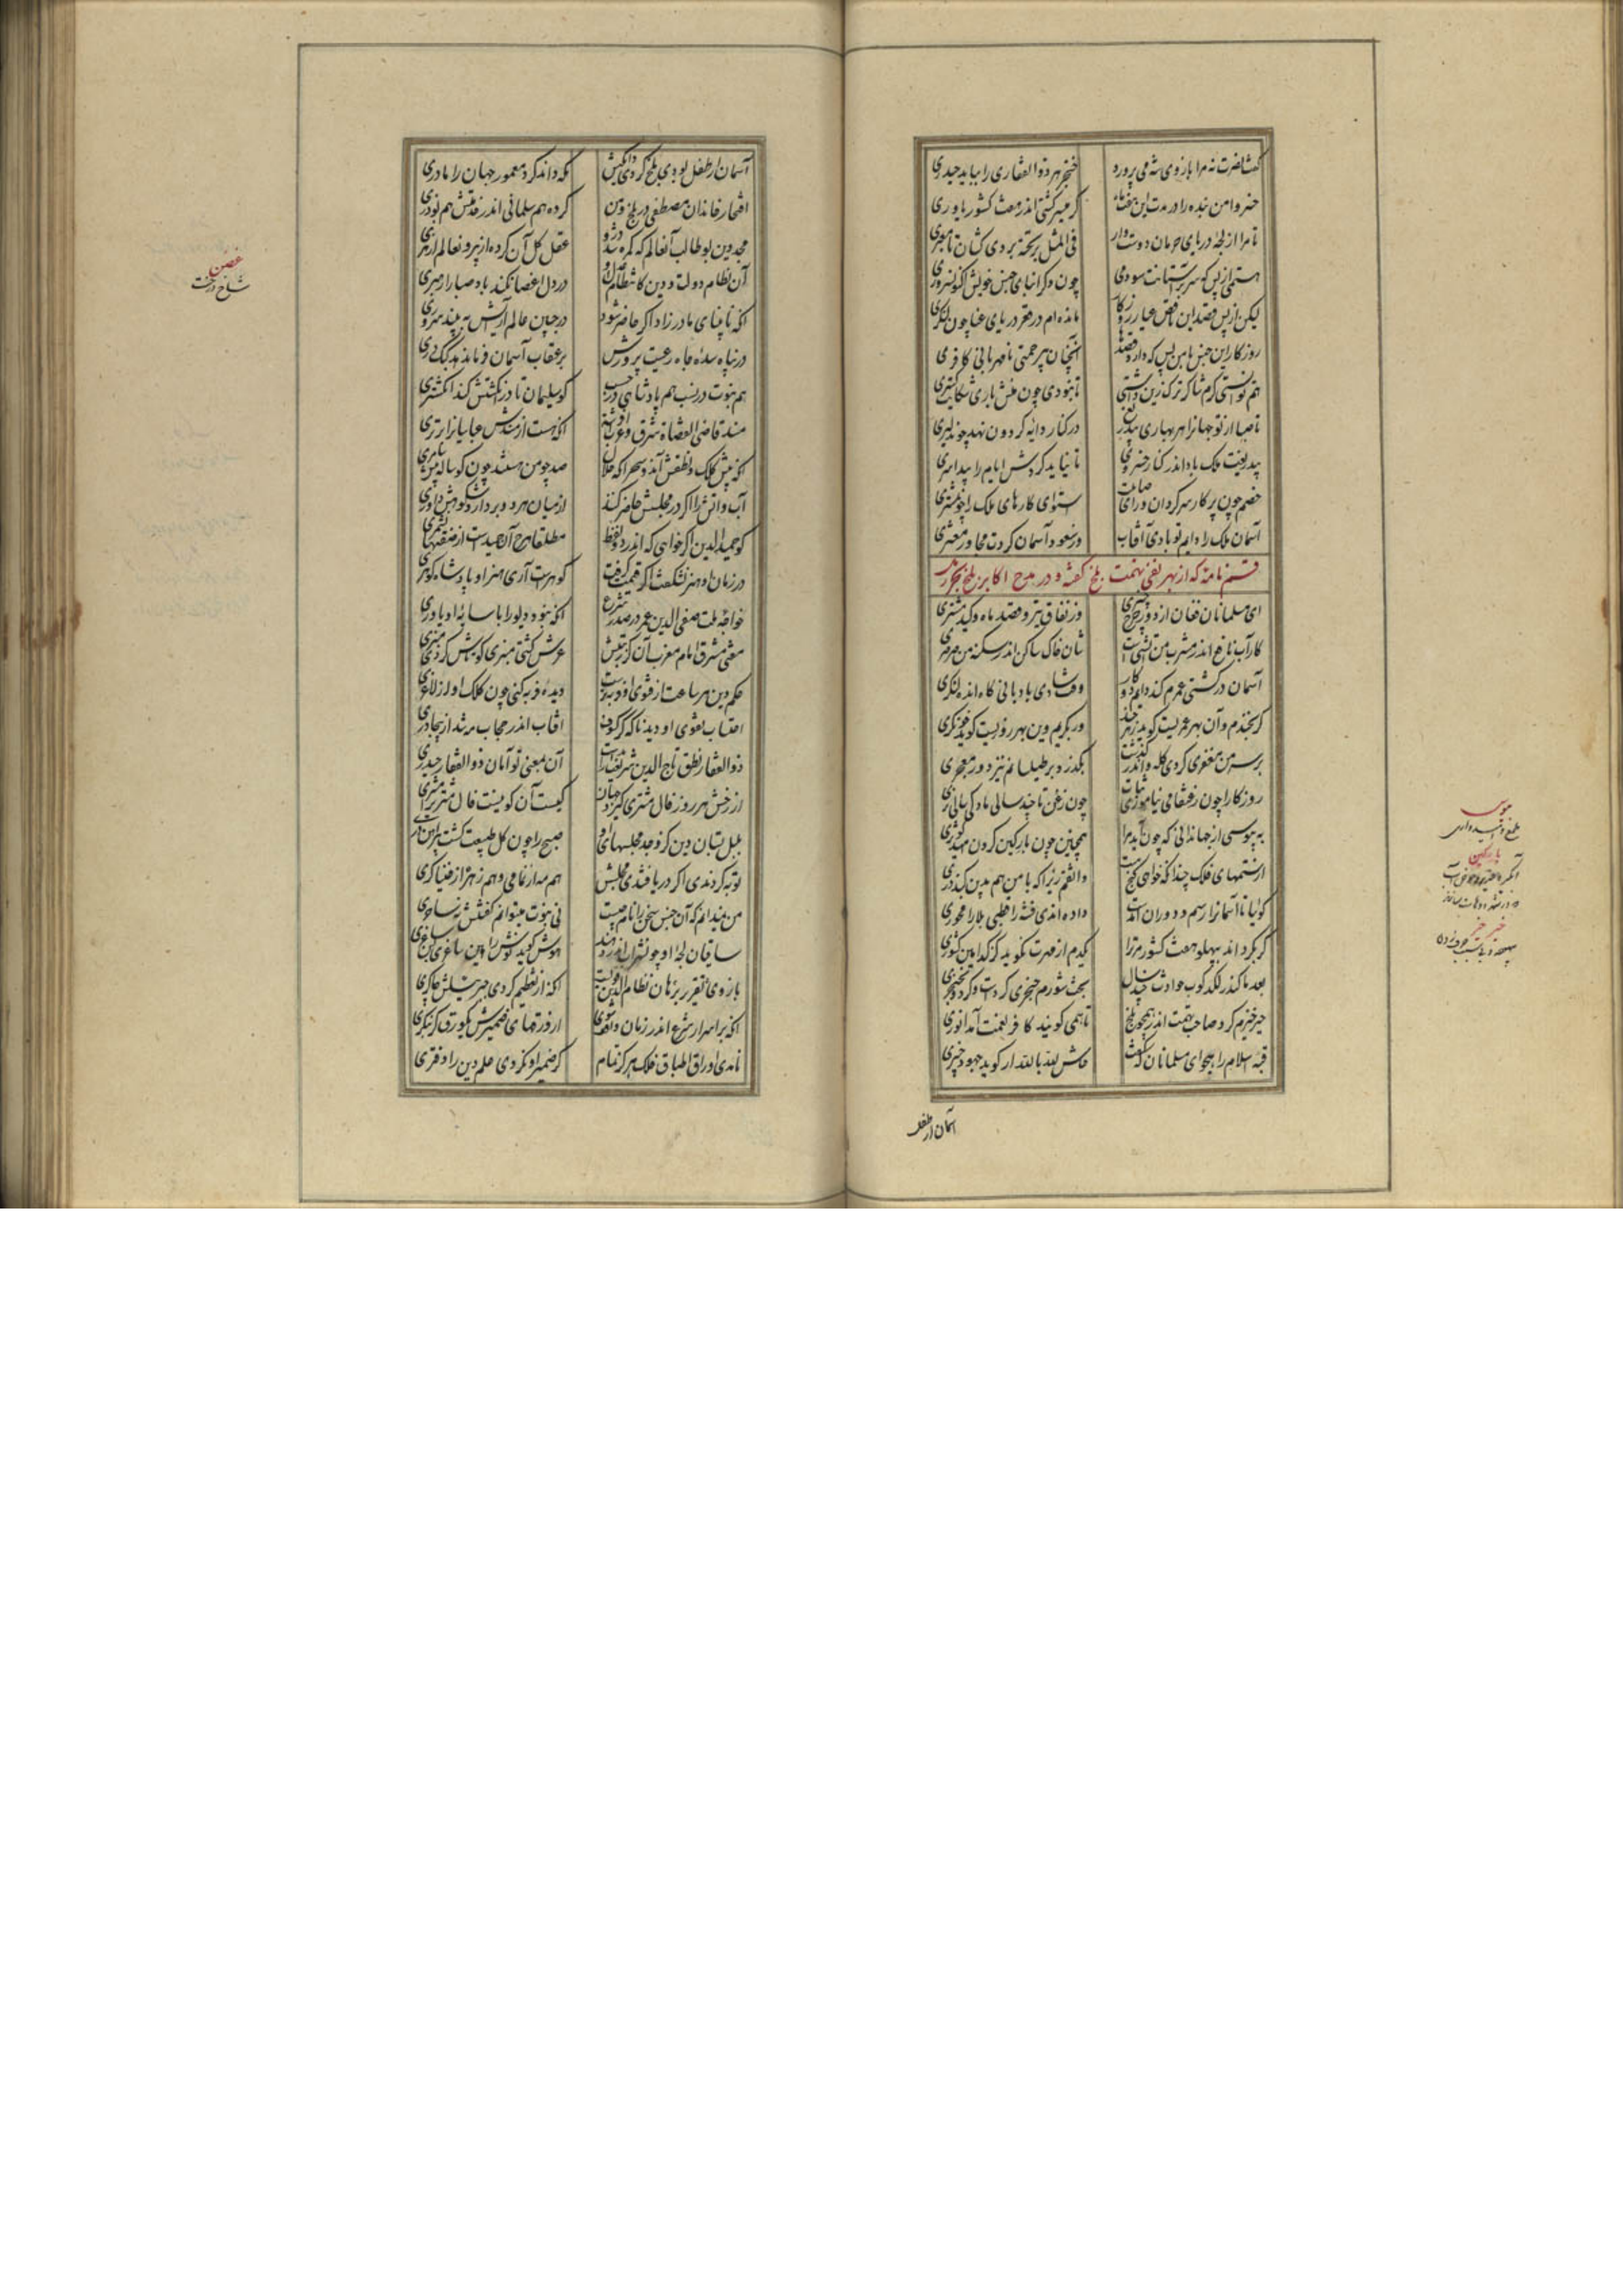 گفت نصرت نه مرا بازوی شه می پرورد خنجر هر ذوالفقاری را بباید حیدری
خسروا من بنده را در مدت این هفت ماه گر میسر گشتی اندر هفت کشور یاوری
تا مرا از لجهٔ دریای حرمان دوست وار فی المثل بر تخته بردی کشان تا معبری
هستمی از بس که سر بر آستانت سودمی چون دگر ابنای جنس خویش اکنون سروری
لیکن از بس قصد این ناقص عیار زرگار مانده ام در قعر دریای عنا چون لنگری
روزگار این جنس با من بس که دارد قصدها اینچنان بیرحمتی نامهربانی کافری
هم توانستی کرم شاکر ترک زین داشتی تا نبودی چون منش باری شکایت گستری
تا صبا از تو جهانرا هر بهاری بیدریغ در کنار دایه گردون نهد چون دلبری
بیدریغت ملک باد اندر کنار خسروی تا نیاید گردش ایام را پیدا سری
خصم چون پرگار سرگردان و رای صایبت استوای کارهای ملک را چون مسطری
آسمان ملک را دایم تو بادی آفتاب ور سعود آسمان گردت مجاور معشری
قسم نامهٔ که از بهر نفی تهمت بلخ گفته و در مدح اکابر بلخ
ای مسلمانان فغان از دور چرخ چنبری وز نفاق تیر و قصد ماه و کید مشتری
کار آب نافع اندر مشرب من آتشی است شان خاک ساکن اندر سکنهٔ من صرصری
آسمان در کشتی عمرم کند دایم دو کار وقت شادی بادبانی گاه انده لنگری
گر بخندم وان بهر عمریست گوید زهرخند ور بگریم وین بهر روزیست گوید خون گری
بر سر من مغفری کردی کله واندر گذشت بگذرد بر طیلسانم نیز دور معجری
روزگارا چون ز عنقا می نیاموزی ثبات چون زغن تا چند سالی مادگی سالی نری
به بیوسی از جهان دانی که چون آید مرا همچنین چون بارگین کردن امید کوثری
از ستمهای فلک چندانکه خواهی گنج هست واثقم زیرا که با من هم بدین گنبد دری
گوئیا تا آسمانرا رسم دوران آمدست داده اندی فتنه را قطبی بلا را محوری
گر بگرداند بپهلو هفت کشور مر ترا یکدم از مهرت نگوید کز کدامین کشوری
بعد ما کاندر لگدکوب حوادث چند سال بخت شورم حنجری کردست و گردون خنجری
خیر خیرم کرد صاحب تهمت اندر هجو بلخ تا همی گویند کافر نعمت آمد انوری
قبهٔ اسلام را هجو ای مسلمانان که گفت حاش لله بالله ار گوید جهود خیبری
آسمان ار طفل
بیوس
طمع و امیدواری
بارگین
خیر خیر
آسمان ار طفل بودی بلخ کردی دایگیش مکه داند کرد معمور جهان را مادری
افتخار خاندان مصطفی در بلخ و من کرده هم سلمانی اندر خدمتش هم بوذری
مجد دین بوطالب آنعالم که گم شد درو عقل کل آن کرده از بیرون عالم از هری
آن نظام دولت و دین کانتظام عدل او در دل اغصان کند باد صبا را رهبری
آنکه نابینای مادرزاد اگر حاضر شود در جبین عالم آرایش به بیند سروری
در پناه سدهٔ جاه رعیت پرورش بر عقاب آسمان فرمان دهد کبک دری
هم نبوت در نسب هم پادشاهی در حسب کو سلیمان تا در انگشتش کند انگشتری
مسند قاضی القضاة شرق و غرب افراشته آنکه هست از مسندش عباسیانرا برتری
آنکه پیش کلک و نطقش آن دو سحر آنکه حلال صد چو من هستند چون گوساله پیش سامری
آب و آتش را اگر در مجلسش حاضر کنند از میان هر دو بردارد شکوهش داوری
کو حمید الدین اگر خواهی که اندر دو لفظ مطلقا هر آن حمیدست از صفتها بشمری
در زمان او هنر نشگفت اگر قیمت گرفت گوهرست آری هنر او پادشاه گوهری
خواجهٔ ملت صفی الدین عمر در صدر شرع آنکه نبود دیو را با سایهٔ او یاوری
مفتی مشرق امام مغرب آن کز رتبتش عرش گشتی منبری گر عرش کردی منبری
حکم دین هر ساعت از فتوی او فربه ترست دیده فربه کنی چون کلک او از لاغری
احتساب تقوی او دید ناگه گر کسوف آفتاب اندر حجاب مه شد از بیچادری
ذوالفقار نطق تاج الدین شریعت را بدست آن بمعنی توأمان ذوالفقار حیدری
از رخش هر روز فال مشتری گیرد جهان کیست آن کو نیست فال مشتری را مشتری
بلبل بستان دین کز وجد مجلسهای او صبح را چون گل طبیعت گشت پیراهن دری
توبه کردندی اگر دریافتندی مجلسش هم مه از نمامی و هم زهره از خنیاگری
من نمیدانم که آن جنس سخن را نام چیست نی نبوت میتوانم گفتنش نه ساحری
ساقیان لجهٔ او چون شراب اندر دهند هوش گوید گوش را هین ساغری کن ساغری
بازوی تقریر برهان نظام الدین قویست آنکه از تعظیم کردی جبرئیلش چاکری
آنکه بر اسرار شرع اندر زمان واقف شوی ار ورقهای ضمیرش یکورق گر بنگری
نامدی اوراق اطباق فلک هرگز تمام گر ضمیر او نکردی علم دین را دفتری
غصن
شاخ درخت